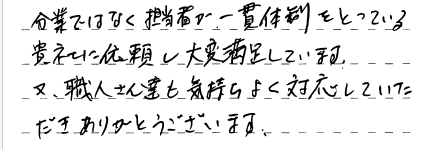 分業ではなく担当者が一貫体制をとっている
貴社に依頼し大変満足しています。
又、職人さん達も気持ちよく対応していた
だきありがとうございます。